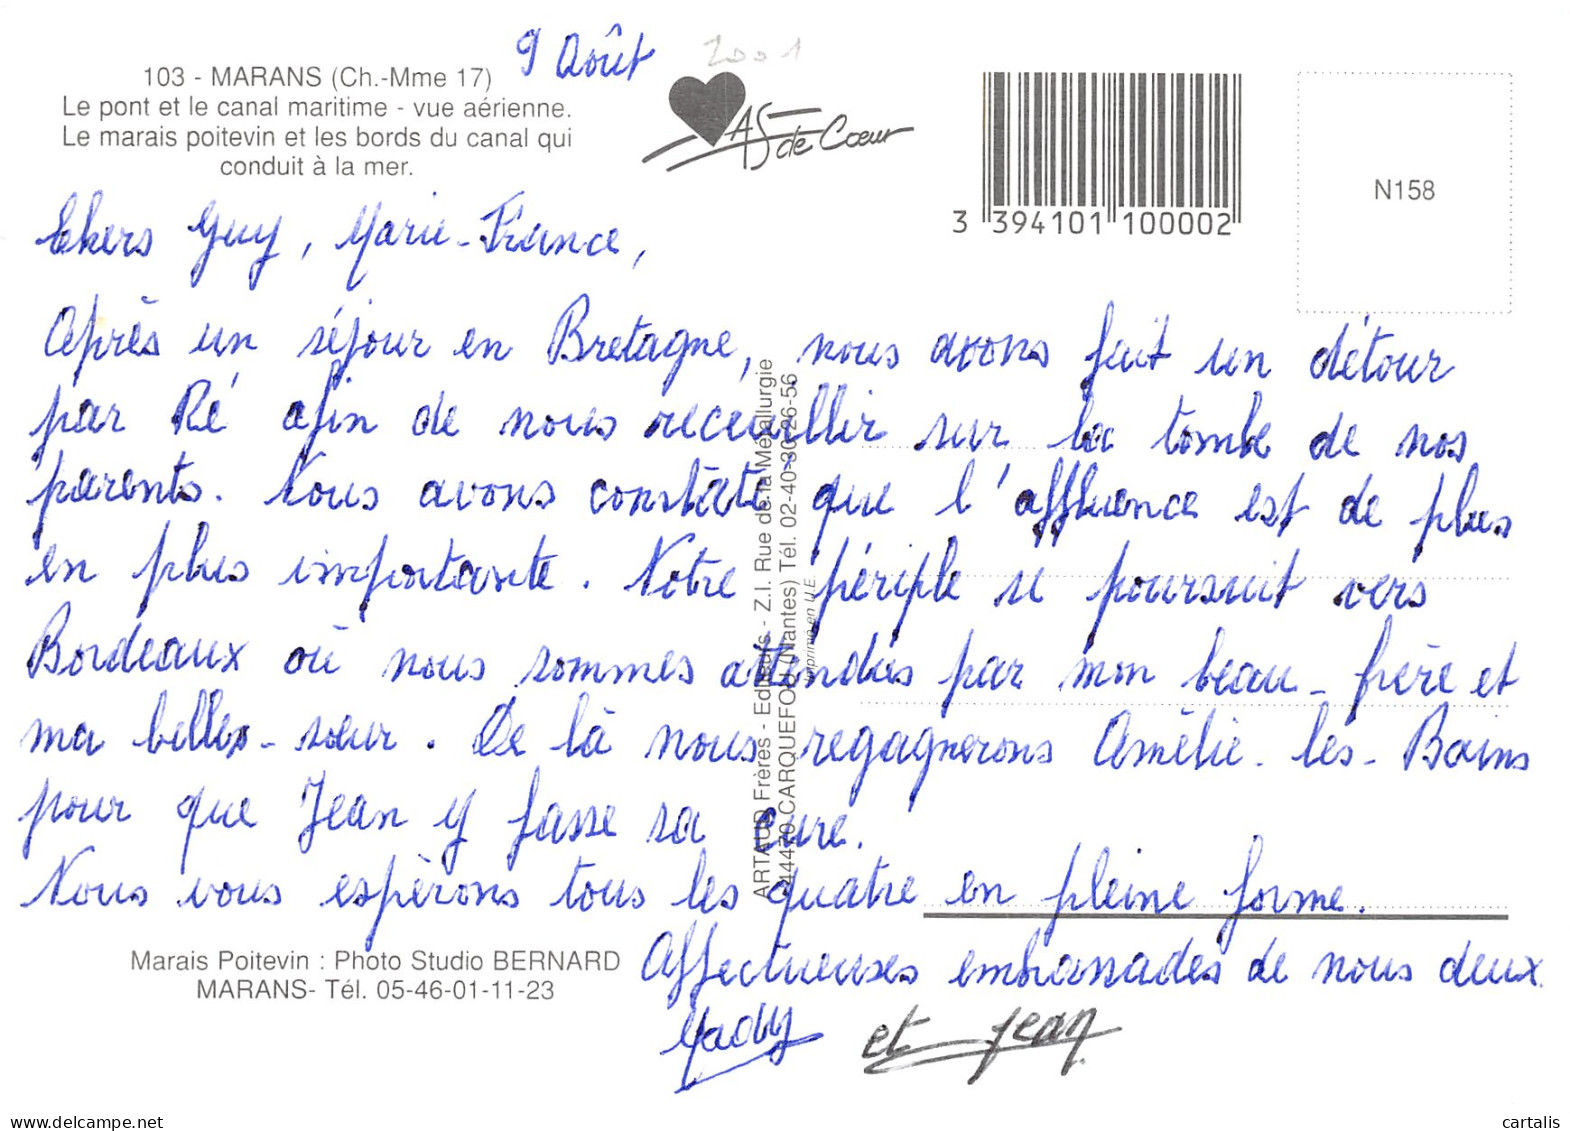 9 Août 2001
103 - MARANS (Ch.-Mme 17)
Le pont et le canal maritime - vue aérienne.
Le marais poitevin et les bords du canal qui
conduit à la mer.
AS de Cœur
3 394101 100002
N158
Chers Guy, Marie-France,
Après un séjour en Bretagne, nous avons fait un détour
par Ré afin de nous receuillir sur la tombe de nos
parents. Nous avons constaté que l'affluence est de plus
en plus importante. Notre périple se poursuit vers
Bordeaux où nous sommes attendus par mon beau-frère et
ma belle-sœur. De là nous regagnerons Amélie-les-Bains
pour que Jean y fasse sa cure.
Nous vous espérons tous les quatre en pleine forme.
Affectueuses embrassades de nous deux.
Mady et Jean
ARTAUD Frères - Editeurs - Z.I. Rue de la Métallurgie
44470 CARQUEFOU (Nantes) Tél. 02-40-30-26-56
Imprimé en U.E.
Marais Poitevin : Photo Studio BERNARD
MARANS- Tél. 05-46-01-11-23
www.delcampe.net
cartalis